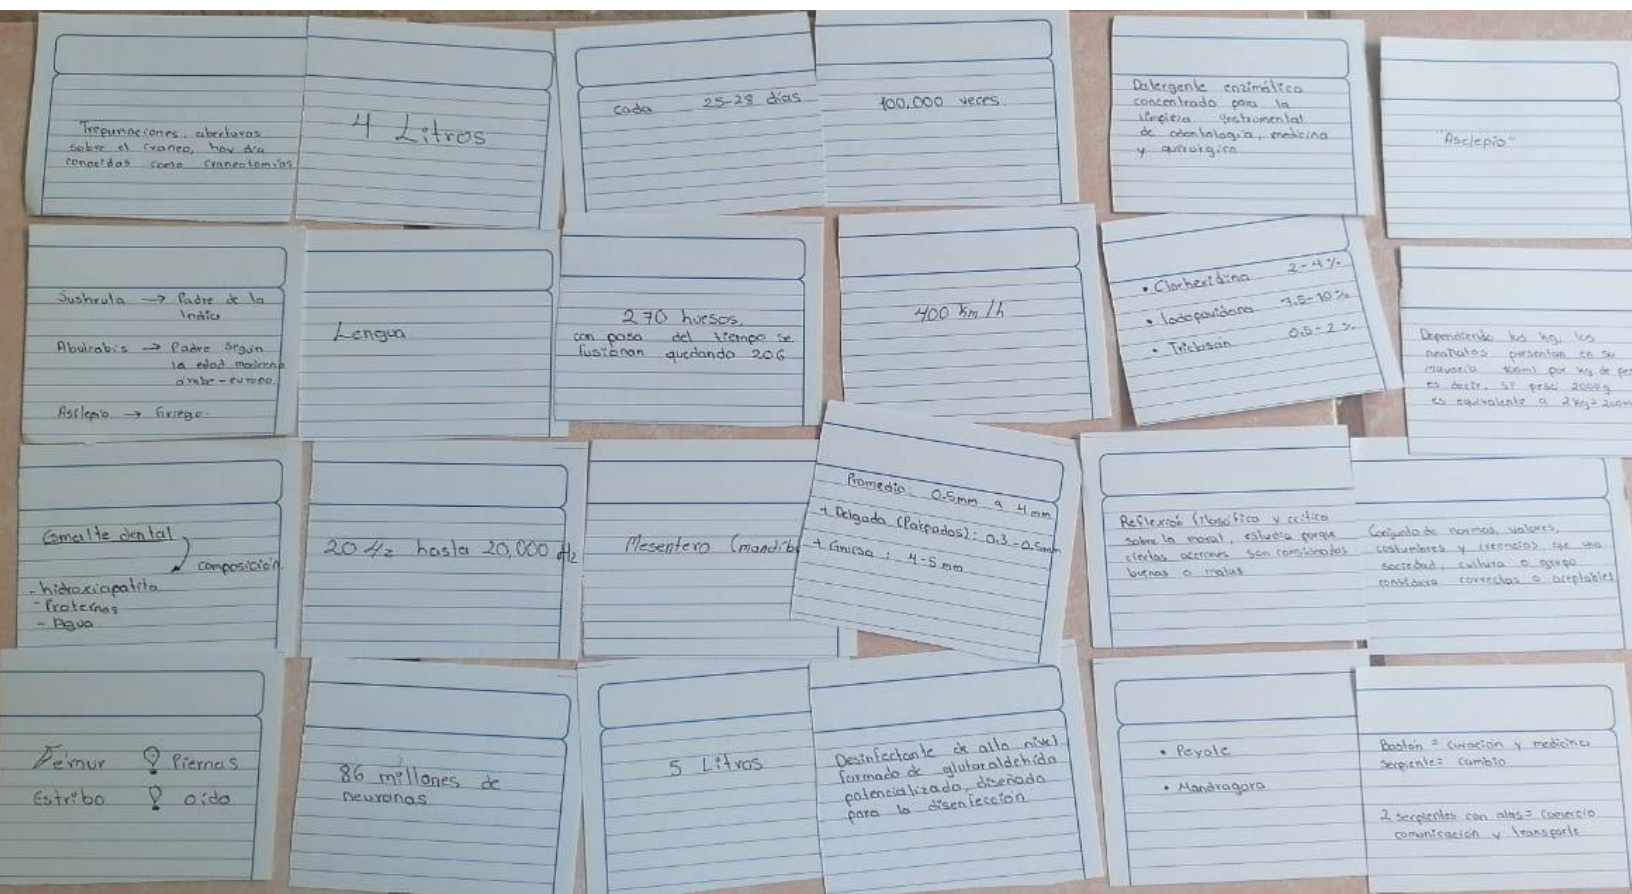 Trepunaciones, aberturas
sobre el craneo, hoy día
conocidas como craneotomias
4 Litros
cada 25-28 días
100,000 veces
Detergente enzimático
concentrado para la
limpieza instrumental
de odontología, medicina
y quirurgico
"Asclepio"
Sushruta → Padre de la
India
Abulcabis → Padre según
la edad moderna
árabe-europeo
Asclepio → Griego.
Lengua
270 huesos,
con paso del tiempo se
fusionan quedando 206
400 km/h
• Clorhexidina 2-4%
• Iodopovidona 7.5-10%
• Triclosán 0.5-2%
Dependiendo los kg, los
neonatos presentan en su
mayoría 100ml por kg de pe
es decir, si pesa 2000g
es equivalente a 2kg= 200m
Esmalte dental
composición
- hidroxiapatita
- Proteínas
- Agua
20 Hz hasta 20,000 Hz
Mesentero (mandíb
Promedio: 0.5mm a 4mm
+ Delgada (Parpados): 0.3-0.5mm
+ Gruesa: 4-5mm
Reflexión filosófica y crítica
sobre la moral, estudia porque
ciertas acciones son consideradas
buenas o malas
Conjunto de normas, valores,
costumbres y creencias que una
sociedad, cultura o grupo
considera correctas o aceptables
Fémur Piernas
Estribo oído
86 millones de
neuronas
5 Litros
Desinfectante de alto nivel
formado de glutaraldehído
potencializado, diseñado
para la disenfección
• Peyote
• Mandragora
Bastón = curación y medicina
Serpiente= cambio
2 serpientes con alas= comercio
comunicación y transporte